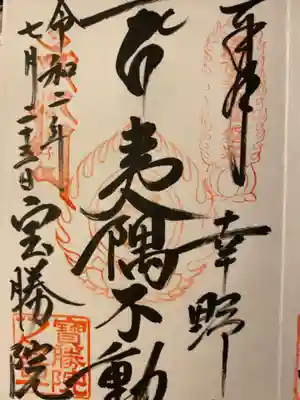 奉拝 幸野
夷隅不動
令和二年
七月二十三日 宝勝院
寶勝院